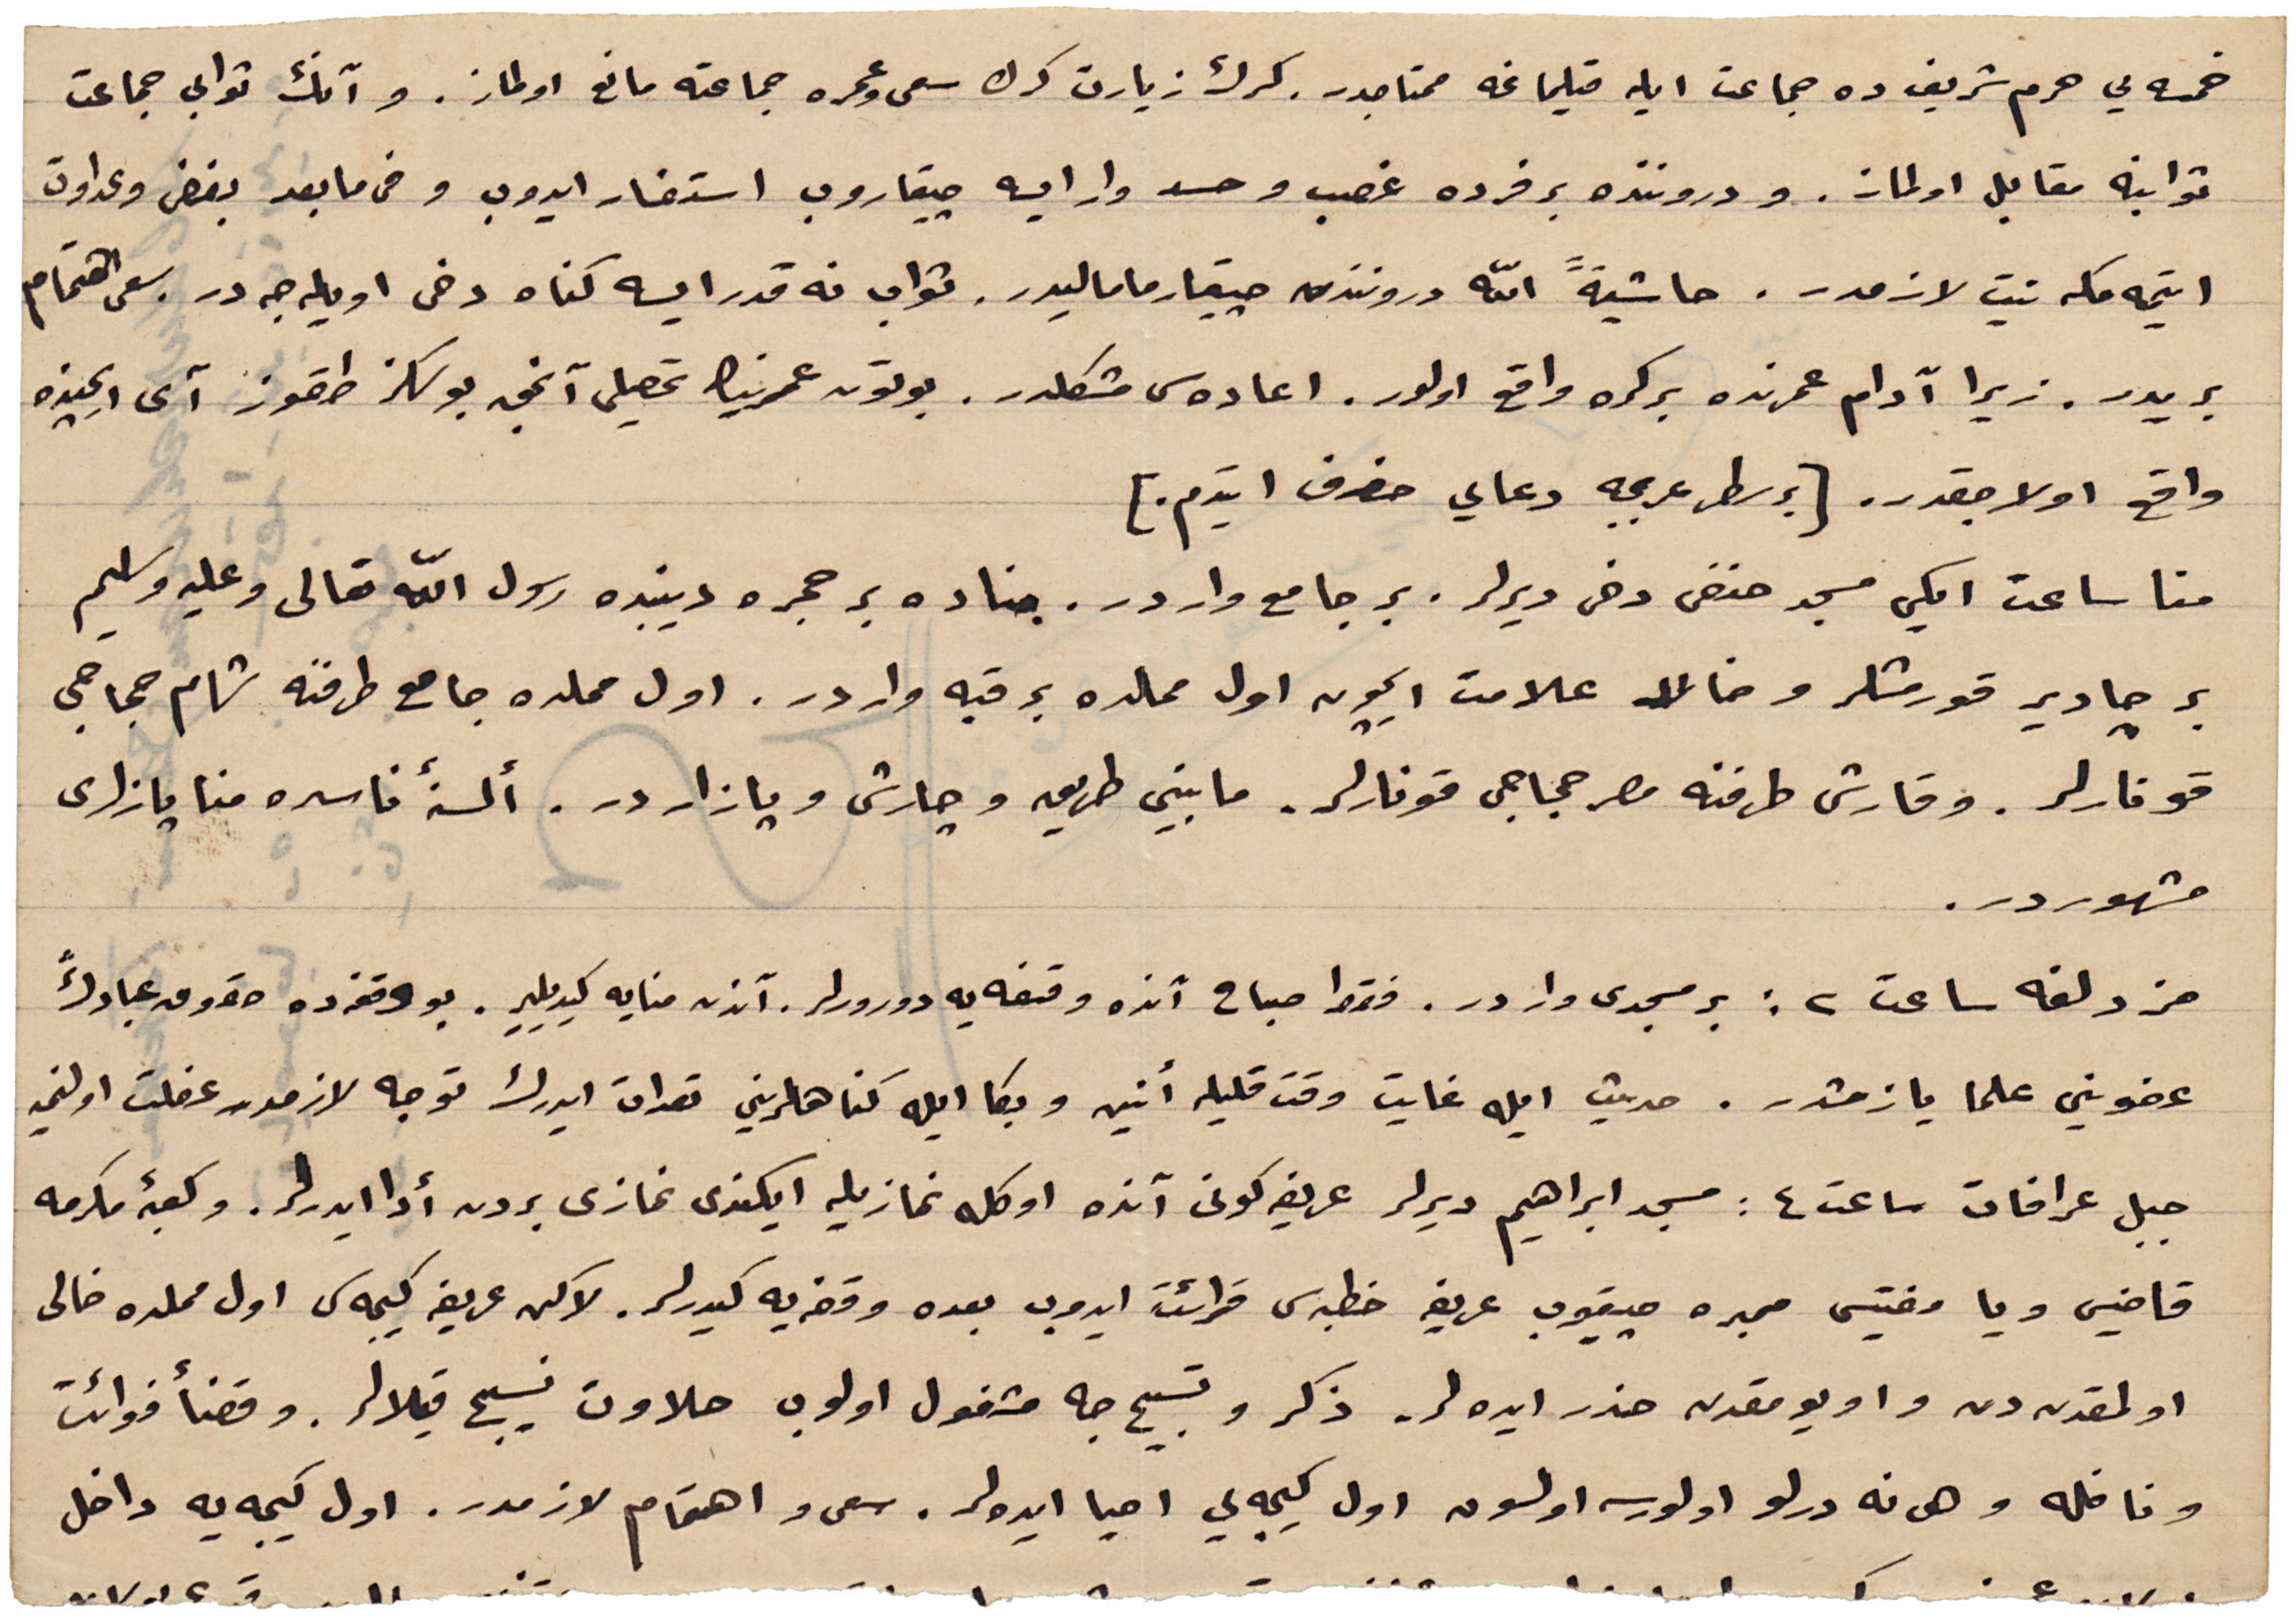 خمسه يي حرم شريف ده جماعت ايله قيلماغه محتاجدر. كرك زيارت كرك سعى وعمره جماعته مانع اولماز. و آنك ثوابي جماعت
ثوابنه مقابل اولماز. و دروننده بر فرده غضب و حسد وار ايسه چيقاروب استغفار ايدوب و فى ما بعد بغض وعداوت
ايتمه مكه نيت لازمدر. حاشيةً الله دروننندن چيقارمامالیدر. ثواب نه قدر ايسه كناه دخى اويله جه در. سعى اهتمام
بريدر. زيرا آدام عمرنده بر كره واقع اولور. اعاده سى مشكلدر. بوتون عمرينك تحصيلى آنجق بو سكز طقوز آى ايچنده
واقع اولاجقدر. [بر سطر عربجه دعايي حذف ايتدم.]
منا ساعت ايكي مسجد حنفى دخى ديرلر. بر جامع واردر. مناده بر حجره ديبنده رسول الله تعالى وعليه وسلم
بر چادير قورمشلر و حالا علامت ايچون اول محلده بر قبه واردر. اول محلده جامع طرفنه شام حجاجي
قونارلر. وقارشى طرفنه مصر حجاجى قونارلر. مابيني طريق و چارشى و پازاردر. ألسنهٔ ناسده منا پازارى
مشهوردر.
مزدلفه ساعت ٢: بر مسجدى واردر. فقط صباح آنده وقفه يه دورورلر. آندن منايه كيديلير. بو وقفه ده حقوق عبادك
عفويني علما يازمشدر. حديث ايله غايت وقت قليله أنين و بكا ايله كناهلريني تعداد ايدرك توجه لازمدر غفلت اولنميه
جبل عرافات ساعت ٤: مسجد ابراهيم ديرلر عريفه كونى آنده اوكله نمازيله ايكندى نمازى بردن أدا ايدرلر. و كعبهٔ مكرمه
قاضيسى ويا مفتيسى ممبره چيقوب عريفه خطبه سى قرائت ايدوب بعده وقفه يه كيدرلر. لاكن عريفه كيجه سى اول محلده خالى
اولمقدن دن و اويومقدن حذر ايده لر. ذكر و تسبيح جه مشغول اولوب حلاوت تسبيح قيلالر. و قضأ فوائت
و نافله و هر نه درلو اولورسه اولسون اول كيجه يي احيا ايده لر. سعى و اهتمام لازمدر. اول كيجه يه داخل